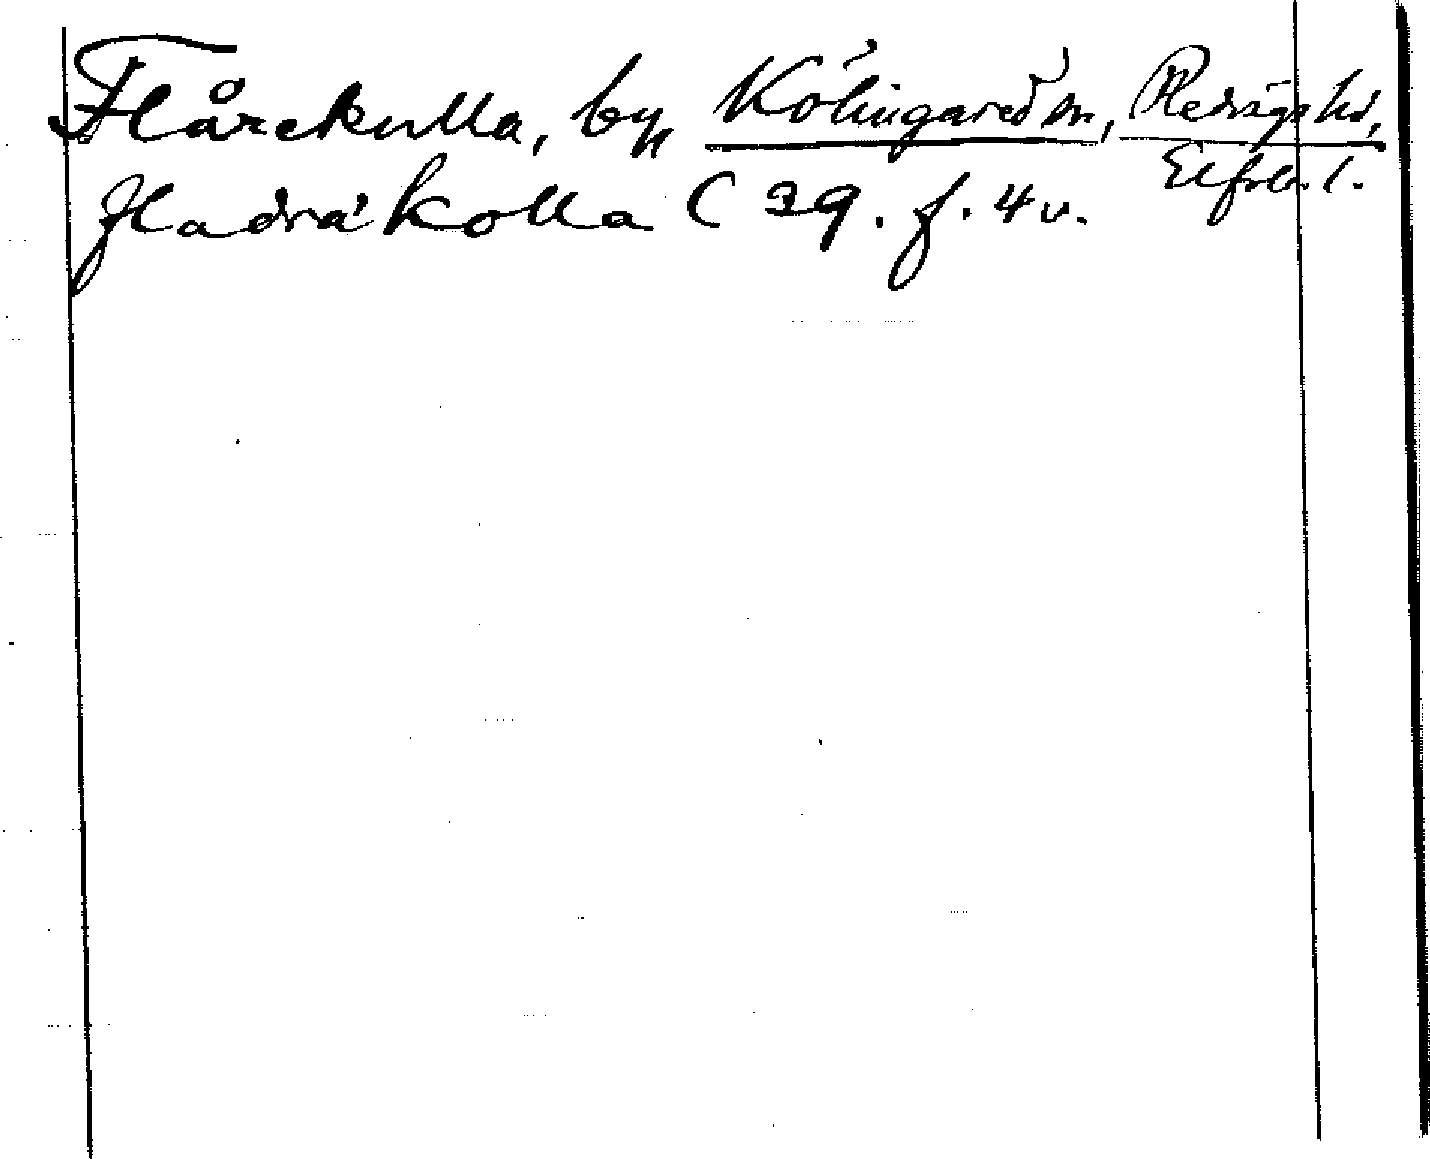 Flårekulla, by, Kölingared sn, Redvägs hd,
Elfsb. l.
fladrákolla C 39. f. 4 v.